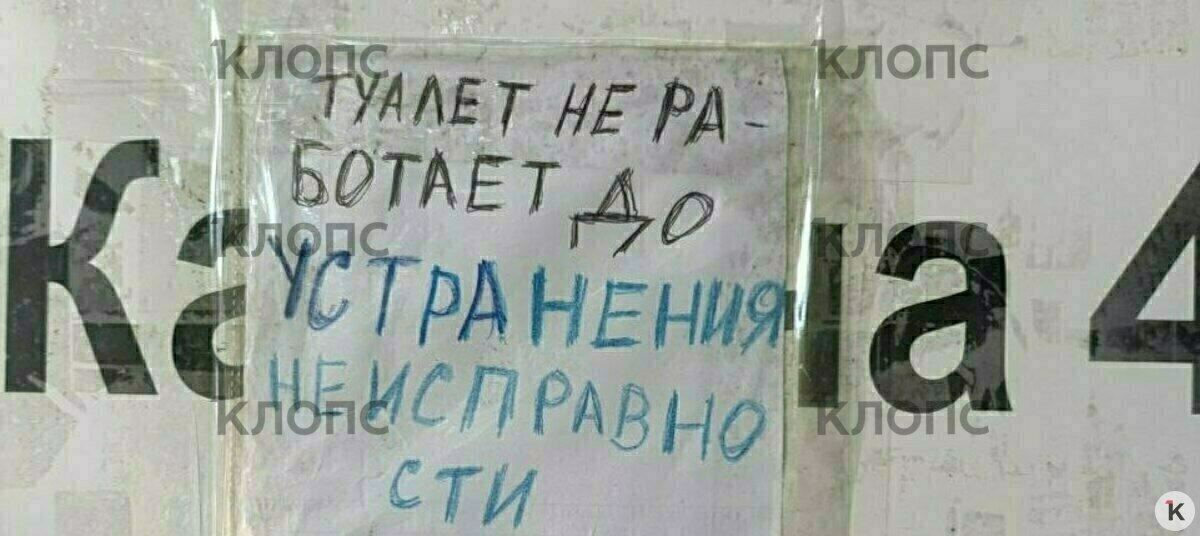 КЛОПС КЛОПС
ТУАЛЕТ НЕ РА-
БОТАЕТ ДО
КЛОПС КЛОПС
УСТРАНЕНИЯ
НЕИСПРАВНО
КЛОПС КЛОПС
СТИ
К